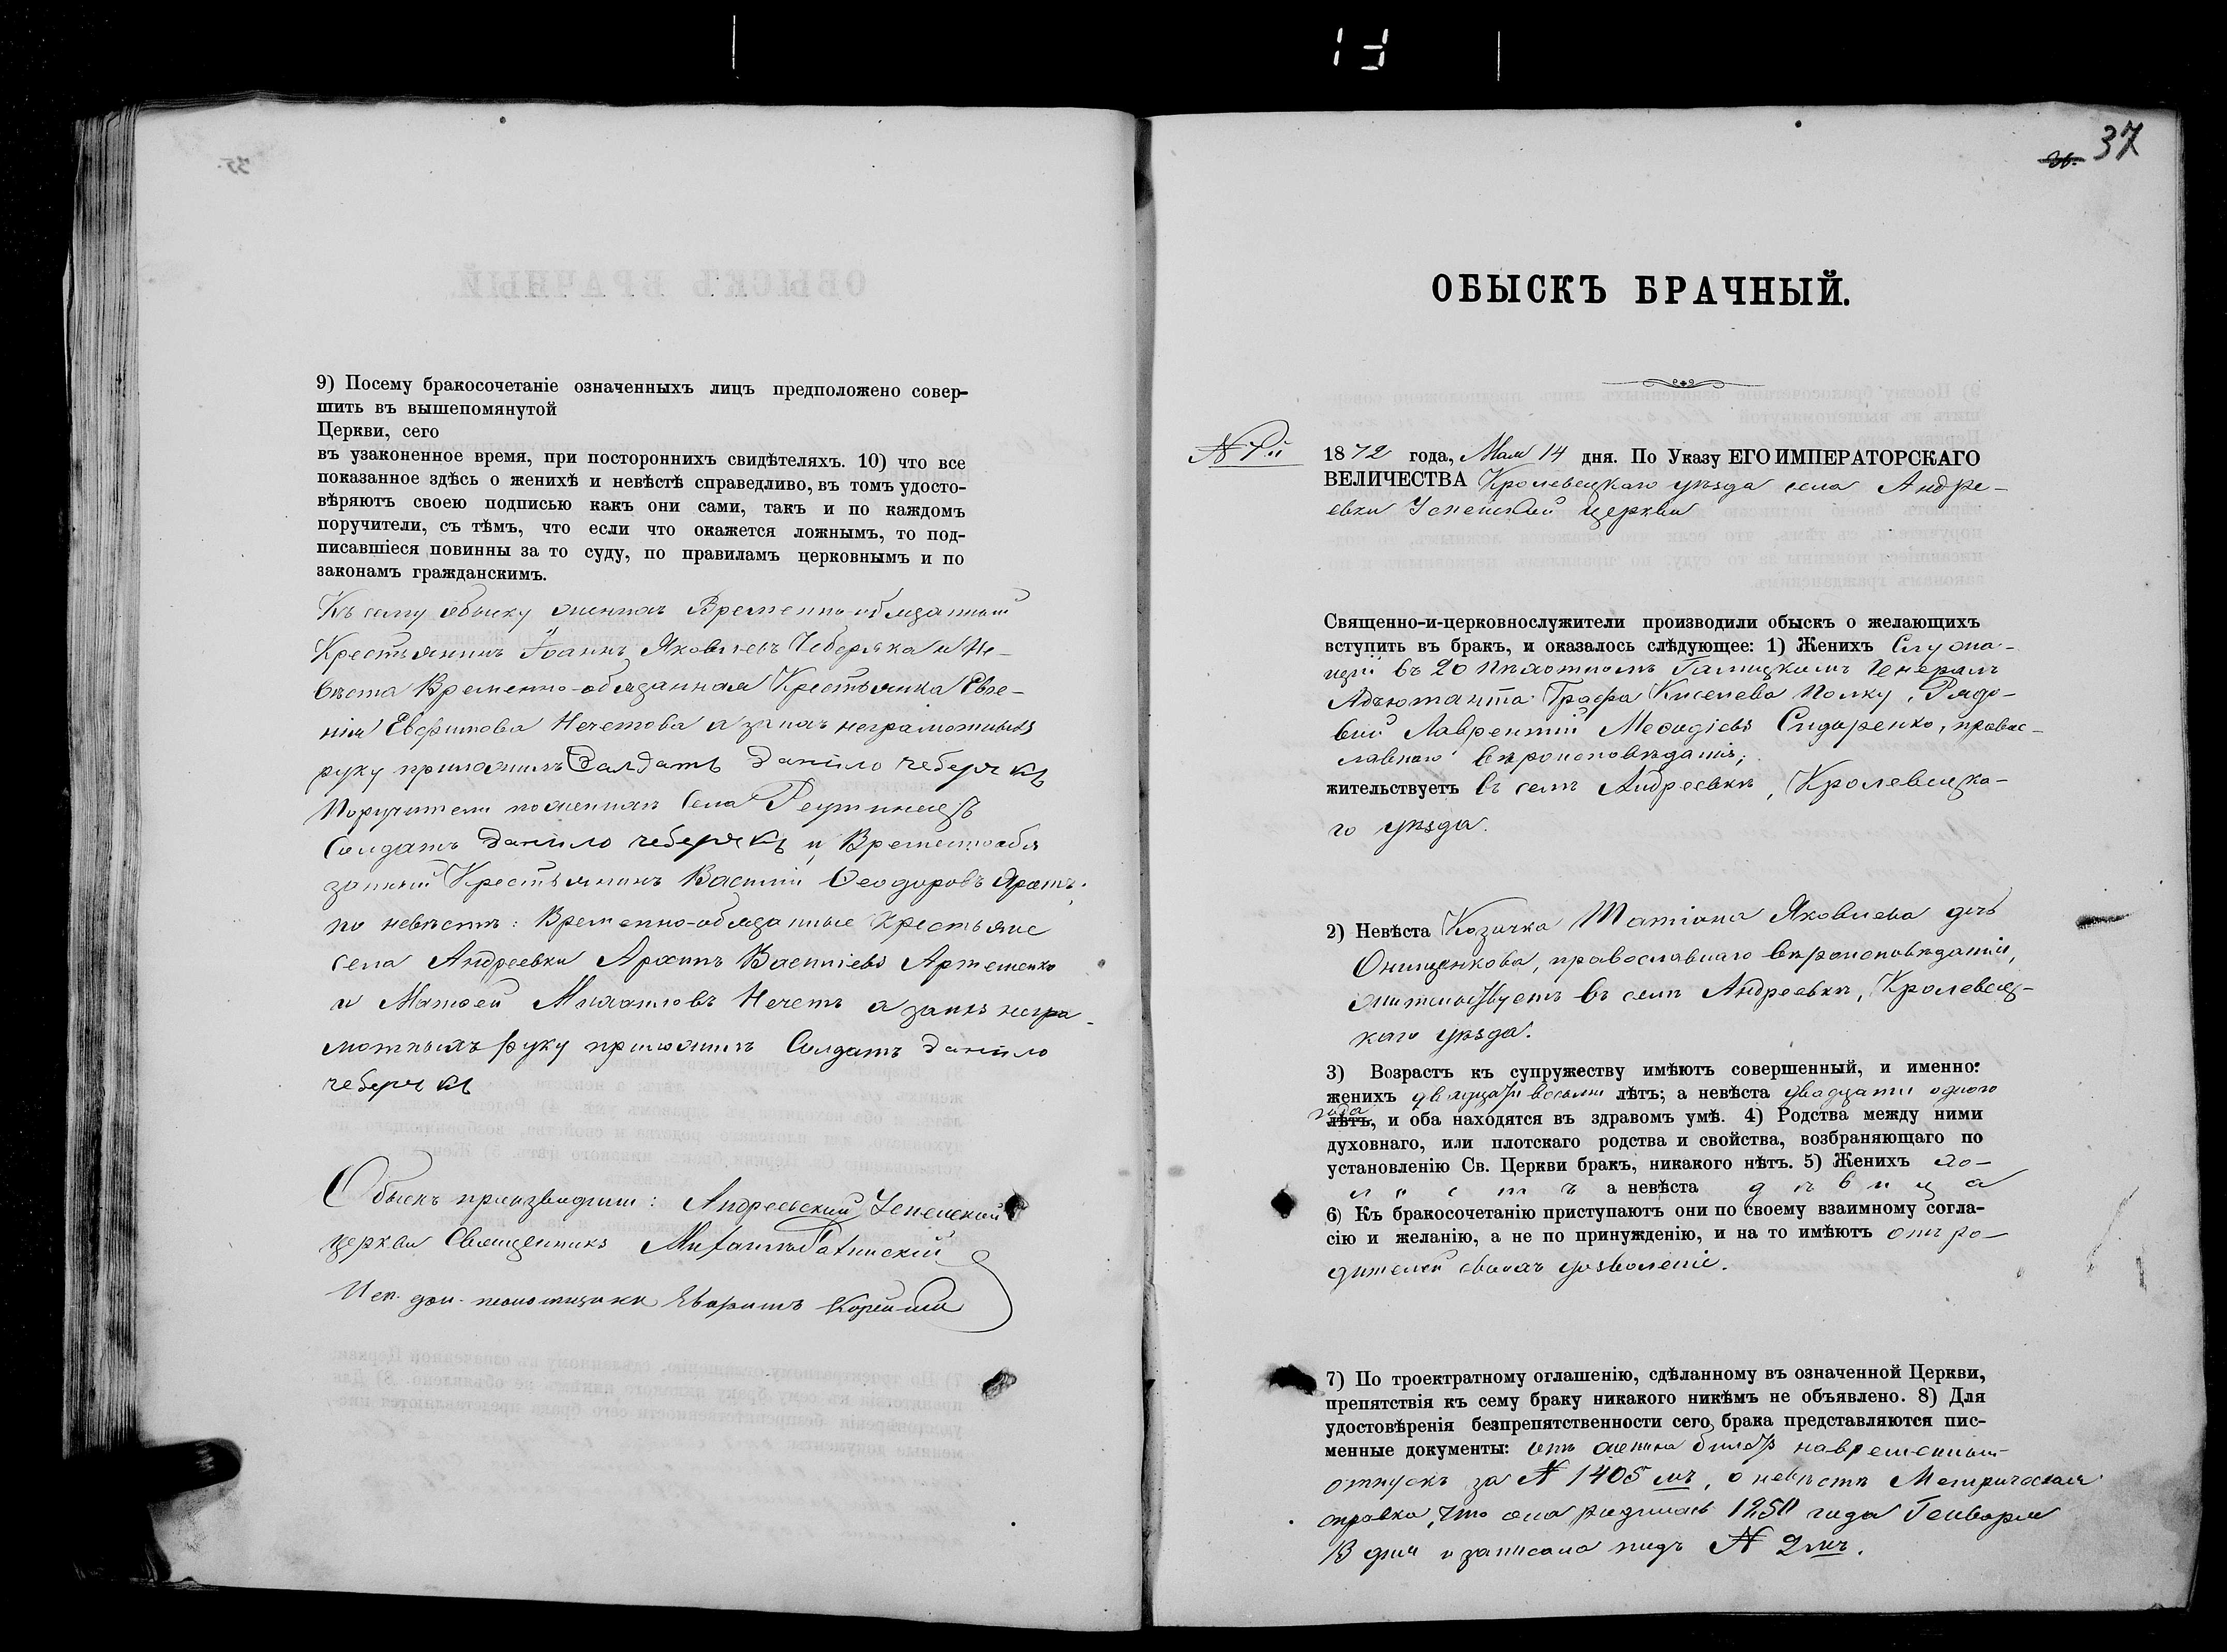 9) Посему бракосочетаніе означенныхъ лицъ предположено совер-
шить въ вышепомянутой
Церкви, сего
въ узаконенное время, при постороннихъ свидѣтеляхъ. 10) что все
показанное здѣсь о женихѣ и невѣстѣ справедливо, въ томъ удосто-
вѣряютъ своею подписью какъ они сами, такъ и по каждомъ
поручители, съ тѣмъ, что если что окажется ложнымъ, то под-
писавшіеся повинны за то суду, по правиламъ церковнымъ и по
законамъ гражданскимъ.
Къ сему обыску женихъ Временно-обязанный
Крестьянинъ Іоаннъ Яковлевъ Чеберяка и Не-
вѣста Временно-обязанная Крестьянка Евге-
нія Евфимова Нечетова а за них неграмотныхъ
руку приложилъ Салдатъ Данило чеберякъ
Поручители по женихѣ села Реутинецъ
Солдатъ Данило чеберякъ и Временнообя
занный Крестьянинъ Василій Ѳеодоровъ
по невѣстѣ: Временно-обязанные Крестьяне
села Андреевки Архипъ Василіевъ Артеменко
и Матѳей Михаиловъ Нечетъ а за них негра-
мотныхъ руку приложилъ Солдатъ Данило
чеберякъ
Обыскъ производили: Андреевской Успенской
церкви Священникъ Михаилъ
Исп. дол. псаломщика
36. 37
ОБЫСКЪ БРАЧНЫЙ.
N 7й
1872 года, Мая 14 дня. По Указу ЕГО ИМПЕРАТОРСКАГО
ВЕЛИЧЕСТВА Кролевецкаго уѣзда села Андре-
евки Успенской церкви
Священно-и-церковнослужители производили обыскъ о желающихъ
вступить въ бракъ, и оказалось слѣдующее: 1) Женихъ Служа-
щій въ 20 пѣхотномъ Галицкомъ Генералъ
Адъютанта Графа Киселева Полку, Рядо-
вой Лаврентій Меѳодіевъ Сидоренко, правос-
лавнаго вѣроисповѣданія,
жительствуетъ въ селѣ Андреевкѣ, Кролевецка-
го уѣзда.
2) Невѣста Козачка Татіана Яковлева дочь
Онищенкова, православнаго вѣроисповѣданія,
жительствуетъ въ селѣ Андреевкѣ, Кролевец-
каго уѣзда.
3) Возрастъ къ супружеству имѣютъ совершенный, и именно:
женихъ двадцати восьми лѣтъ; а невѣста двадцати одного
года
лѣтъ, и оба находятся въ здравомъ умѣ. 4) Родства между ними
духовнаго, или плотскаго родства и свойства, возбраняющаго по
установленію Св. Церкви бракъ, никакого нѣтъ. 5) Женихъ хо-
лостъ а невѣста дѣвица
6) Къ бракосочетанію приступаютъ они по своему взаимному согла-
сію и желанію, а не по принужденію, и на то имѣютъ отъ ро-
дителей своихъ дозволеніе.
7) По троектратному оглашенію, сдѣланному въ означенной Церкви,
препятствія къ сему браку никакого никѣмъ не объявлено. 8) Для
удостовѣренія безпрепятственности сего брака представляются пис-
менные документы: отъ жениха билетъ на временный
отпускъ за N 1405 мъ, о невѣстѣ Метрическая
справка, что она родилась 1850 года Генваря
13 дня и записана подъ N 2мъ.